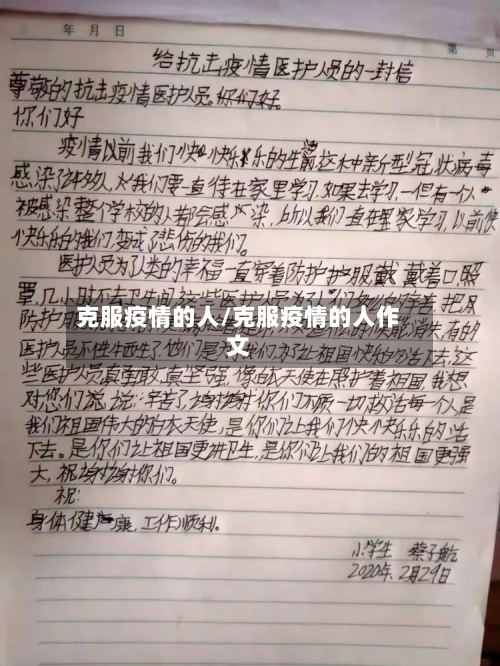 年 月 日
第 页
给抗击疫情医护人员的一封信
尊敬的抗击疫情医护人员。你们好。
你们好
疫情以前我们快快乐乐的生活，这种新型冠状病毒
感染了许多人，我们要一直待在家里学习，如果去学习，一但有一个人
被感染整个学校的人都会感染，所以我们一直在里家学习，以前快
快乐乐的我们变成了悲伤的我们。
医护人员为了人类的幸福一直穿着防护服戴戴着口
罩，几小时不去卫生间
克服疫情的人/克服疫情的人作
文
防护
消失，有的
医护人员不惜牺牲了他们是为我们为了让祖国快的活下去，这
些医护人员真勇敢，真坚强，像白衣天使在照护着祖国，我想
对你们说说：辛苦了谢谢你们不顾一切救活每个人，是
我们祖国伟大的白衣天使，是你们让我们快快乐乐的活
下去。是你们让祖国更讲卫生，是你们让我们的祖国更强
大，祝谢谢你们。
祝：
身体健康，工作顺利。
小学生 蔡子航
2020年2月29日